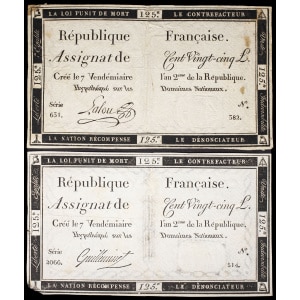 LA LOI PUNIT DE MORT 125# LE CONTREFACTEUR
République Française.
Assignat de Cent Vingt-cinq L.
Créé le 7 Vendémiaire l'an 2me de la République.
Hypothéqué sur les Domaines Nationaux.
Série N.
651. Lalou 582.
LA NATION RÉCOMPENSE 125# LE DÉNONCIATEUR
LA LOI PUNIT DE MORT 125# LE CONTREFACTEUR
République Française.
Assignat de Cent Vingt-cinq L.
Créé le 7 Vendémiaire l'an 2me de la République.
Hypothéqué sur les Domaines Nationaux.
Série N.
2066.
LA NATION RÉCOMPENSE 125# LE DÉNONCIATEUR